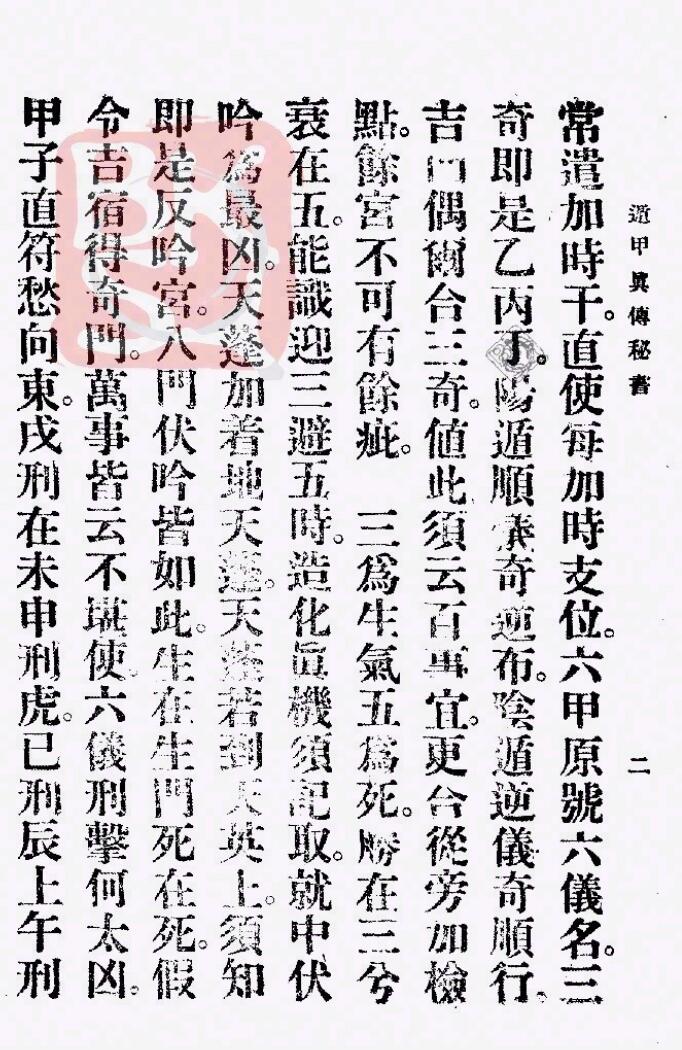 遁甲眞傳秘書
二
常遣加時干。直使每加時支位。六甲原號六儀名。三
奇即是乙丙丁。陽遁順儀奇逆布。陰遁逆儀奇順行。
吉門偶爾合三奇。値此須云百事宜。更合從旁加檢
點。餘宮不可有餘疵。 三爲生氣五爲死。勝在三兮
衰在五。能識迎三避五時。造化眞機須記取。就中伏
吟爲最凶。天蓬加着地天蓬。天蓬若到天英上。須知
即是反吟宮。八門伏吟皆如此。生在生門死在死。假
令吉宿得奇門。萬事皆云不堪使。六儀刑擊何太凶。
甲子直符愁向東。戌刑在未申刑虎。巳刑辰上午刑